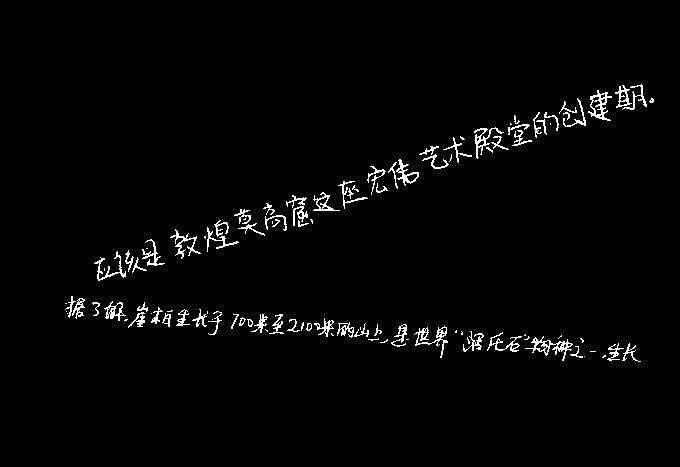 应该是敦煌莫高窟这座宏伟艺术殿堂的创建期。
据了解,崖柏生长于700米至2100米的山上,是世界“活化石”物种之一,生长